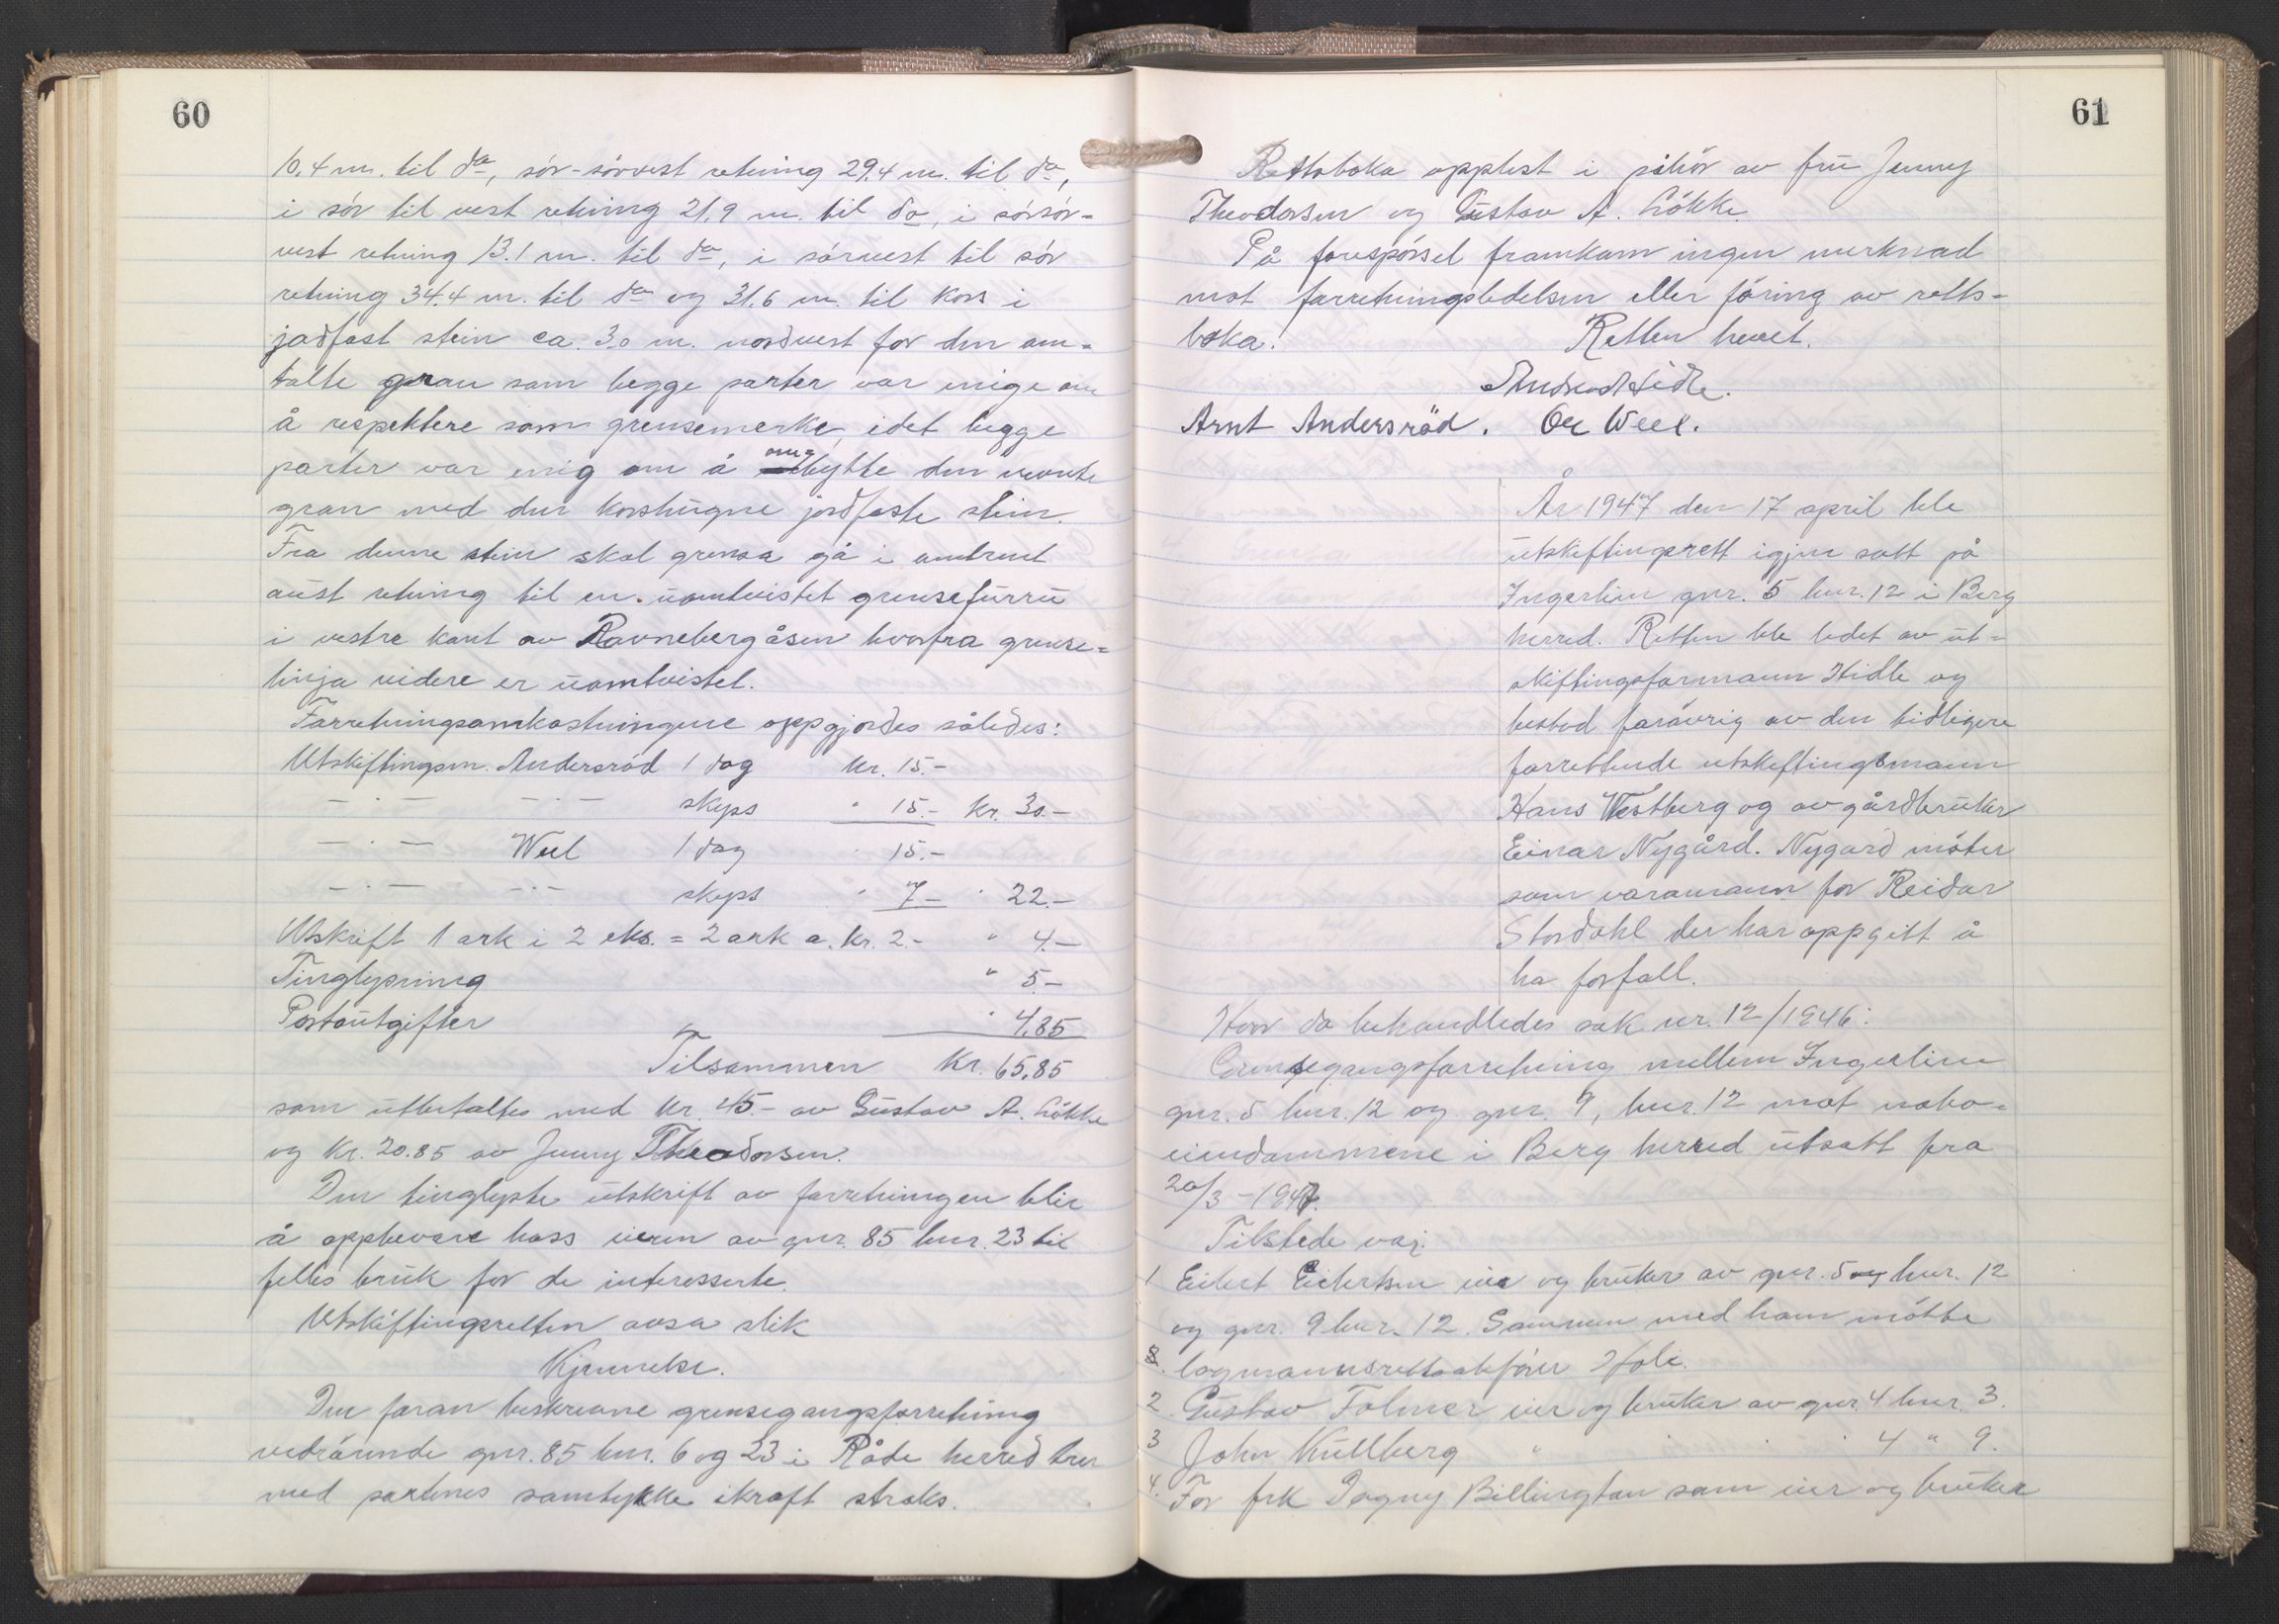 60
10.4 m. til do, sör-sörvest retning 29.4 m. til do,
i sör til vest retning 21.9 m. til do, i sörsör-
vest retning 13.1 m. til do, i sörvest til sör
retning 34.4 m. til do og 31.6 m. til kors i
jordfast stein ca. 3.0 m. nordvest for den om-
talte gran som begge parter var enige om
å respektere som grensemerke, idet begge
parter var enig om å om-bytte den nevnte
gran med den korshugne jordfaste stein.
Fra denne stein skal grensa gå i omtrent
aust retning til en uomtvistet grensefurru
i vestre kant av Ravnebergåsen hvorfra grense-
linja videre er uomtvistet.
Forretningsomkostningene oppgjordes således:
Utskiftingsm. Andersröd 1 dag kr. 15.-
- " - - " - skyss " 15.- kr. 30.-
- " - Weel 1 dag " 15.-
- " - - " - skyss " 7.- " 22.-
Utskrift 1 ark i 2 eks. = 2 ark a. kr. 2.- " 4.-
Tinglysning " 5.-
Postoutgifter " 4.85
Tilsammen kr. 65.85
som utbetaltes med kr. 45.- av Gustav A. Lökke
og kr. 20.85 av Jenny Theodorsen.
Den tinglyste utskrift av forretningen blir
å oppbevare hoss eieren av gnr. 85 bnr. 23 til
felles bruk for de interesserte.
Utskiftingsretten avsa slik
Kjennelse.
Den foran beskrevne grensegangsforretning
vedrörende gnr. 85 bnr. 6 og 23 i Råde herred trer
med partenes samtykke ikraft straks.
61
Rettsboka opplest i påhör av fru Jenny
Theodorsen og Gustav A. Lökke.
På forespörsel framkom ingen merknad
mot forretningsledelsen eller föring av retts-
boka. Retten hevet.
Andreas Hidle.
Arnt Andersröd. Ole Weel.
År 1947 den 17 april ble
utskiftingsrett igjen satt på
Ingerlien gnr. 5 bnr. 12 i Berg
herred. Retten ble ledet av ut-
skiftingsformann Hidle og
bestod forövrig av den tidligere
forrettende utskiftingsmann
Hans Westberg og av gårdbruker
Einar Nygård. Nygård möter
som varamann for Reidar
Stordahl der har oppgitt å
ha forfall.
Hvor da behandledes sak nr. 12/1946:
Grensegangsforretning mellem Ingerlien
gnr. 5 bnr. 12 og gnr. 9, bnr. 12 mot nabo-
eiendommene i Berg herred utsatt fra
20/3 - 1947.
Tilstede var:
1 Eilert Eilertsen eier og bruker av gnr. 5 og bnr. 12
og gnr. 9 bnr. 12. Sammen med ham mötte
lagmannsrettssakförer Hole.
2. Gustav Folmer eier og bruker av gnr. 4 bnr. 3.
3 John Kullberg " " " 4 " 9.
4. For frk Dagny Billington som eier og bruker